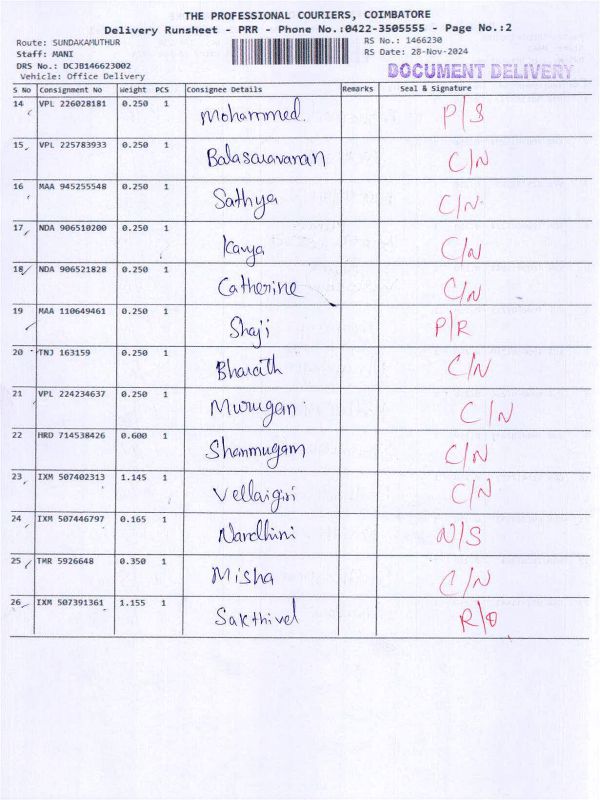 THE PROFESSIONAL COURIERS, COIMBATORE
Delivery Runsheet - PRR - Phone No.:0422-3505555 - Page No.:2
Route: SUNDAKAMUTHUR RS No.: 1466230
Staff: MANI RS Date: 28-Nov-2024
DRS No.: DCJB146623002
Vehicle: Office Delivery DOCUMENT DELIVERY
S No Consignment No Weight PCS Consignee Details Remarks Seal & Signature
14 VPL 226028181 0.250 1 Mohammed. P/S
15 VPL 225783933 0.250 1 Balasaravanan C/N
16 MAA 945255548 0.250 1 Sathya C/N
17 NDA 906510200 0.250 1 Kavya C/N
18 NDA 906521828 0.250 1 Catherine C/N
19 MAA 110649461 0.250 1 Shaji P/R
20 TNJ 163159 0.250 1 Bharath C/N
21 VPL 224234637 0.250 1 Murugan C/N
22 HRD 714538426 0.600 1 Shanmugam C/N
23 IXM 507402313 1.145 1 Vellaigiri C/N
24 IXM 507446797 0.165 1 Nandhini N/S
25 TMR 5926648 0.350 1 Misha C/N
26 IXM 507391361 1.155 1 Sakthivel R/O